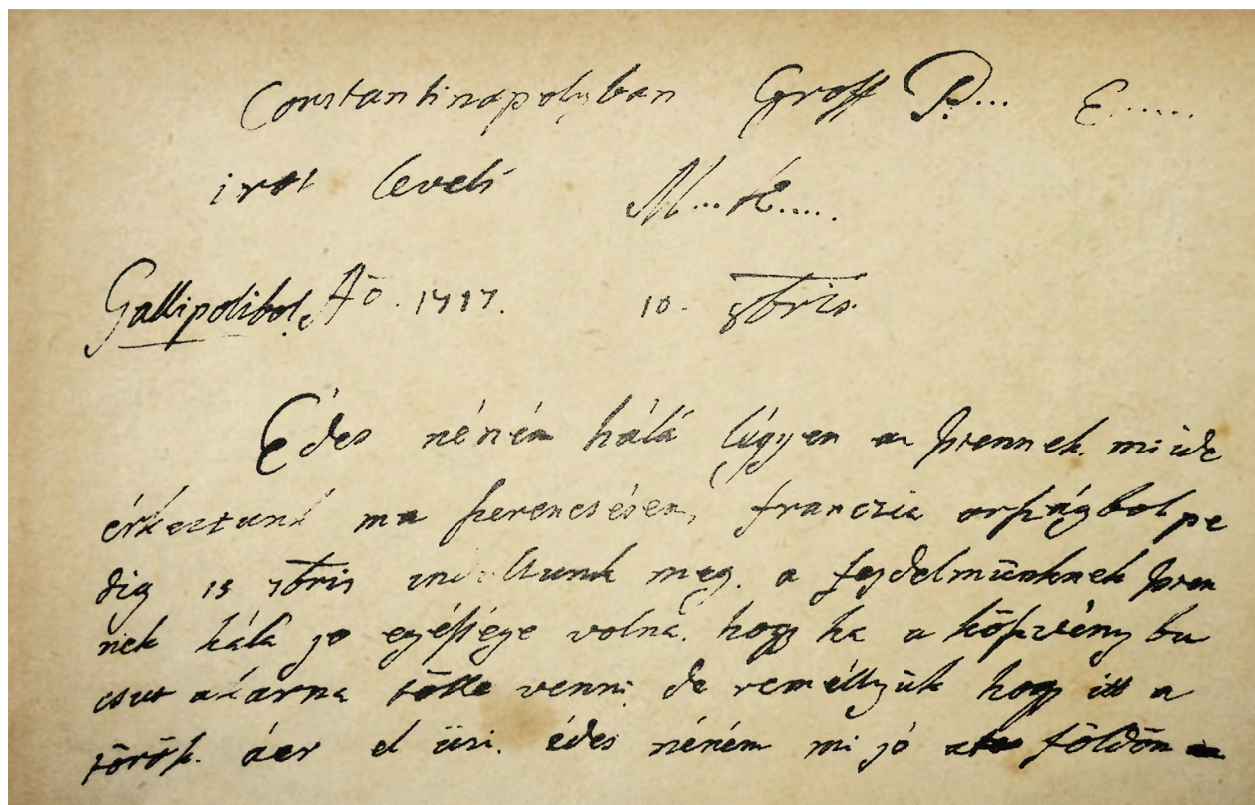 Constantinapolyban Groff P... E.....
irot leveli M... K.....
Gallipolibol, Aō. 1717. 10. 8bris.
Édes néném hálá légyen az Istennek. mi ide
érkeztunk ma szerencsésen, franczia országbol pe
dig 15 7bris indultunk meg. a fejdelmünknek Isten
nek hálá jo egésége volna. hogy ha a köszvény bu
csut akarna tölle venni, de reméllyük hogy itt a
török. áer el üzi. édes néném mi jó a földön